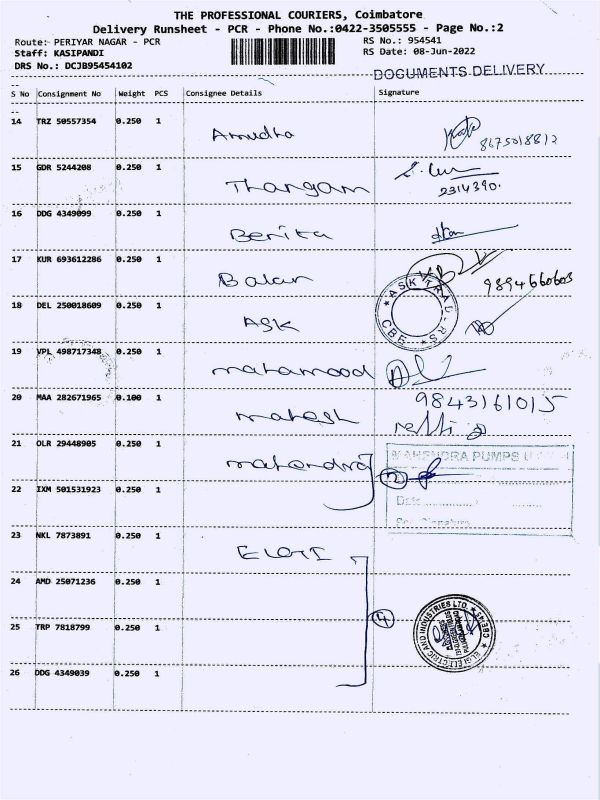 THE PROFESSIONAL COURIERS, Coimbatore
Delivery Runsheet - PCR - Phone No.:0422-3505555 - Page No.:2
Route: PERIYAR NAGAR - PCR RS No.: 954541
Staff: KASIPANDI RS Date: 08-Jun-2022
DRS No.: DCJB95454102
DOCUMENTS DELIVERY
S No Consignment No Weight PCS Consignee Details Signature
14 TRZ 50557354 0.250 1 Amudha 8675018812
15 GDR 5244208 0.250 1 Thangam
2314390.
16 DDG 4349099 0.250 1 Berita
17 KUR 693612286 0.250 1 Balan 9894660603
18 DEL 250018609 0.250 1 ASK ASK TRADERS CBE
19 VPL 498717348 0.250 1 mahamood
20 MAA 282671965 0.100 1 mahesh 9843161015
21 OLR 29448905 0.250 1 mahendra MAHENDRA PUMPS
22 IXM 501531923 0.250 1 2
Date
23 NKL 7873891 0.250 1 ELGI
24 AMD 25071236 0.250 1
25 TRP 7818799 0.250 1 4 ELGI ELECTRIC AND INDUSTRIES LTD. CBE-45
26 DDG 4349039 0.250 1